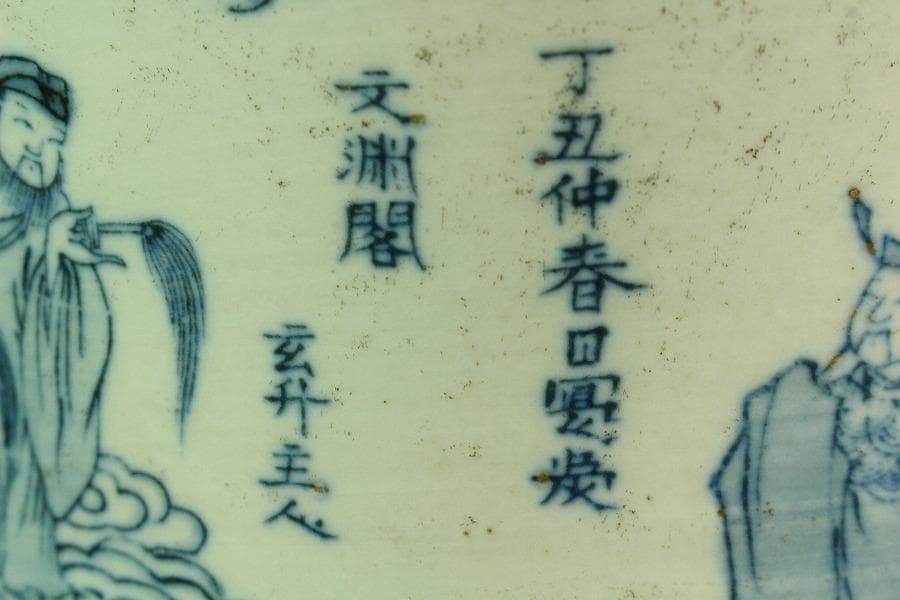 丁丑仲春日寫於
文淵閣
玄升主人